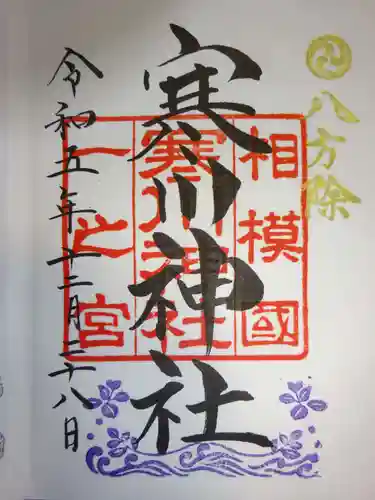 八方除
相模國
寒川神社
一之宮
寒川神社
令和五年十二月二十八日